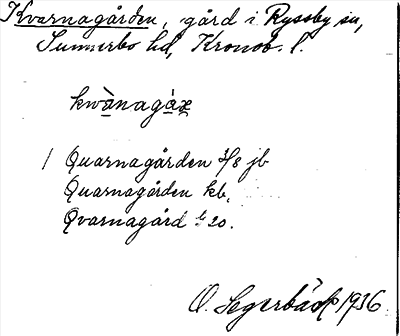 Kvarnagården, gård i Ryssby sn,
Sunnerbo hd, Kronob. l.
kwànagáx
1 Quarnagården 3/8 jb
Quarnagården kb,
Qvarnagård 20.
O. Segerbäck 1936